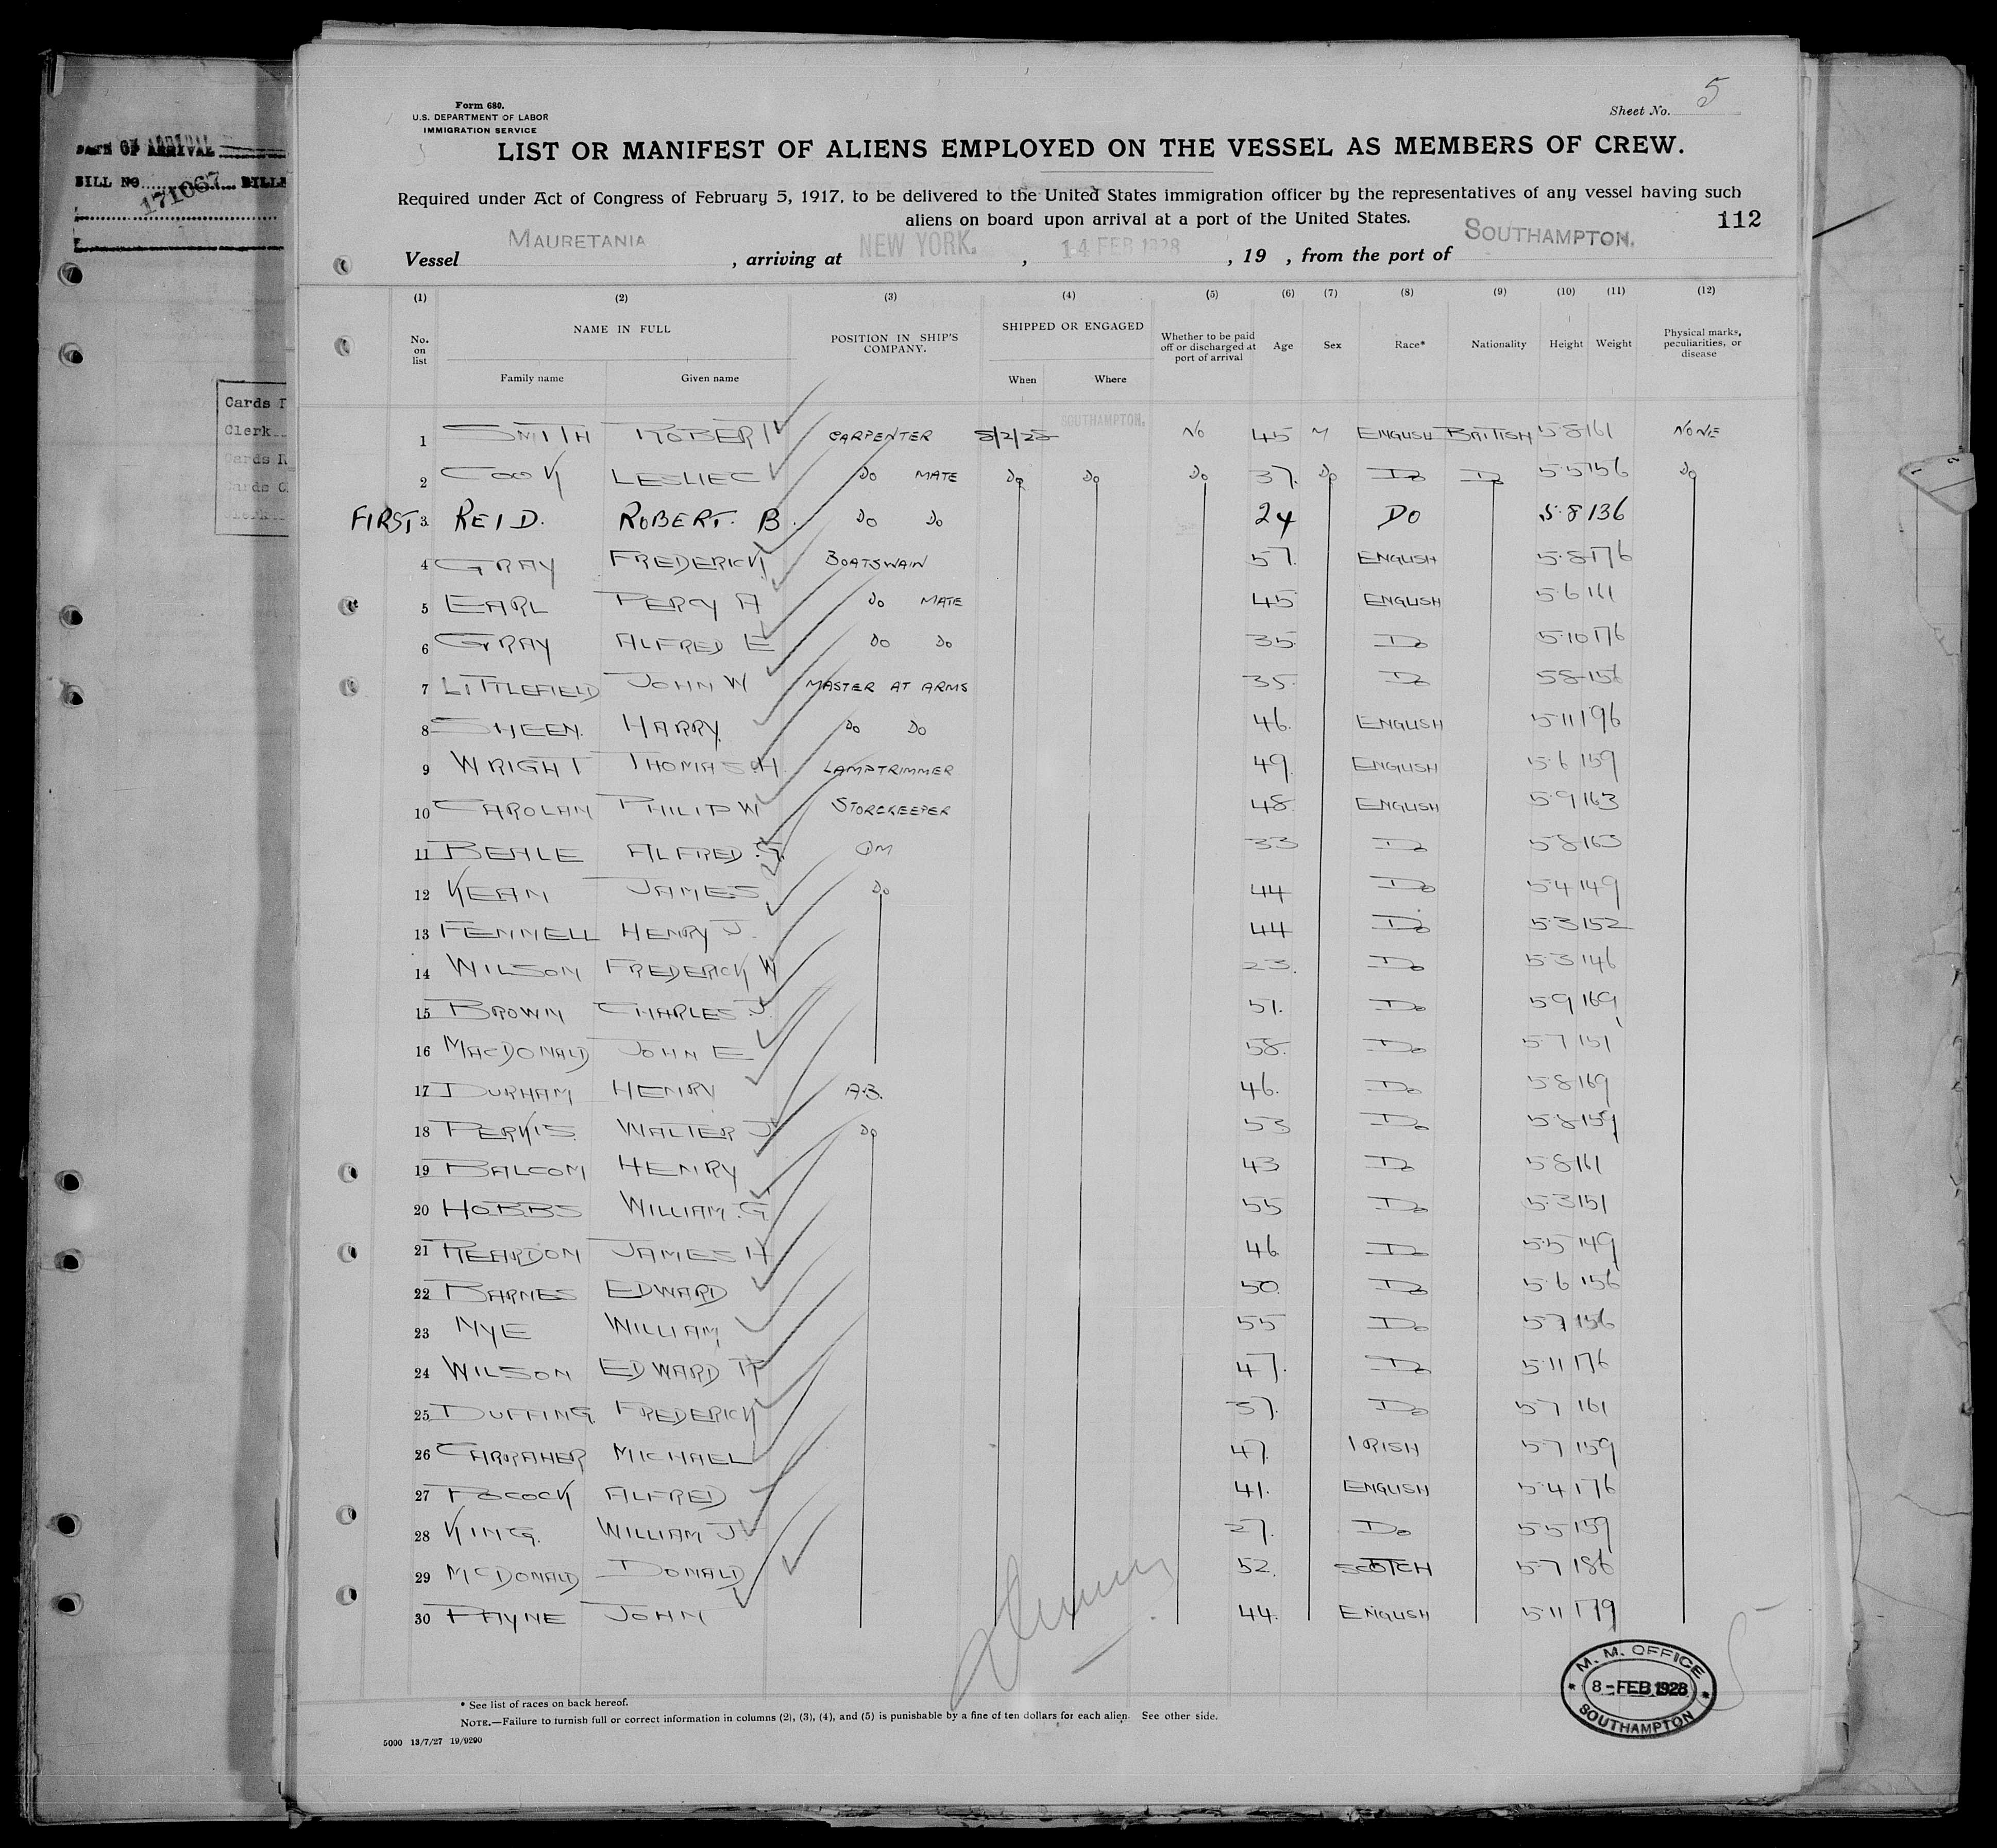 DATE OF ARRIVAL
BILL NO. 171067 BILL
Cards
Clerk
Cards
Cards
Form 680.
U.S. DEPARTMENT OF LABOR
IMMIGRATION SERVICE
Sheet No. 5
LIST OR MANIFEST OF ALIENS EMPLOYED ON THE VESSEL AS MEMBERS OF CREW.
Required under Act of Congress of February 5, 1917, to be delivered to the United States immigration officer by the representatives of any vessel having such
aliens on board upon arrival at a port of the United States.
112
Vessel MAURETANIA, arriving at NEW YORK., 14 FEB 1928, 19 , from the port of SOUTHAMPTON.
(1) (2) (3) (4) (5) (6) (7) (8) (9) (10) (11) (12)
No. on list NAME IN FULL POSITION IN SHIP'S COMPANY. SHIPPED OR ENGAGED Whether to be paid off or discharged at port of arrival Age Sex Race* Nationality Height Weight Physical marks, peculiarities, or disease
Family name Given name When Where
SOUTHAMPTON.
1 SMITH ROBERT CARPENTER 8/2/28 NO 45 M ENGLISH BRITISH 5·8 161 NONE
2 COOK LESLIE C DO MATE DO DO DO 37. DO DO DO 5·5 156 DO
FIRST 3 REID. ROBERT. B. DO DO 24 DO 5·8 136
4 GRAY FREDERICK BOATSWAIN 57. ENGLISH 5·8 176
5 EARL PERCY A DO MATE 45 ENGLISH 5·6 161
6 GRAY ALFRED E DO DO 35 DO 5·10 176
7 LITTLEFIELD JOHN W MASTER AT ARMS 35. DO 5·8 156
8 SHEEN. HARRY. DO DO 46. ENGLISH 5·11 196
9 WRIGHT THOMAS H. LAMPTRIMMER 49. ENGLISH 5·6 159
10 CAROLAN PHILIP W STOREKEEPER 48 ENGLISH 5·9 163
11 BEALE ALFRED .G. QM 33 DO 5·8 163
12 KEAN JAMES DO 44 DO 5·4 149
13 FENNELL HENRY J. 44 DO 5·3 152
14 WILSON FREDERICK W 23. DO 5·3 146
15 BROWN CHARLES J. 51. DO 5·9 169
16 MACDONALD JOHN E 58. DO 5·7 151
17 DURHAM HENRY A.B. 46. DO 5·8 169
18 PERKIS. WALTER J DO 53 DO 5·8 159
19 BALCOM HENRY 43 DO 5·8 161
20 HOBBS WILLIAM .G 55 DO 5·3 151
21 REARDON JAMES H 46 DO 5·5 149
22 BARNES EDWARD 50. DO 5·6 156
23 NYE WILLIAM 55 DO 5·7 156
24 WILSON EDWARD R 47. DO 5·11 176
25 DUFFING FREDERICK 37. DO 5·7 161
26 CARRAHER MICHAEL 47. IRISH 5·7 159
27 POCOCK ALFRED 41. ENGLISH 5·4 176
28 KING. WILLIAM J 27. DO 5·5 159
29 MCDONALD DONALD 52. SCOTCH 5·7 186
30 PAYNE JOHN 44. ENGLISH 5·11 179
M. M. OFFICE
8 - FEB 1928
SOUTHAMPTON
5
* See list of races on back hereof.
NOTE.—Failure to furnish full or correct information in columns (2), (3), (4), and (5) is punishable by a fine of ten dollars for each alien. See other side.
5000 13/7/27 19/9290